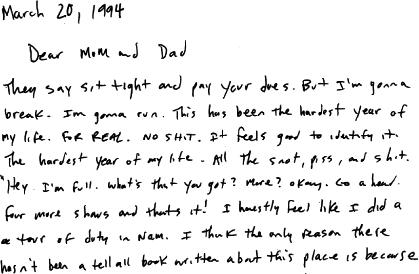 March 20, 1994
Dear Mom and Dad
They say sit tight and pay your dues. But I'm gonna
break. Im gonna run. This has been the hardest year of
my life. FOR REAL. NO SHIT. It feels good to identify it.
The hardest year of my life. All the snot, piss, and shit.
"Hey. I'm full. What's that you got? More? Okay. Go a head.
Four more shows and thats it! I honestly feel like I did a
a tour of duty in Nam. I think the only reason there
hasn't been a tell all book written about this place is because